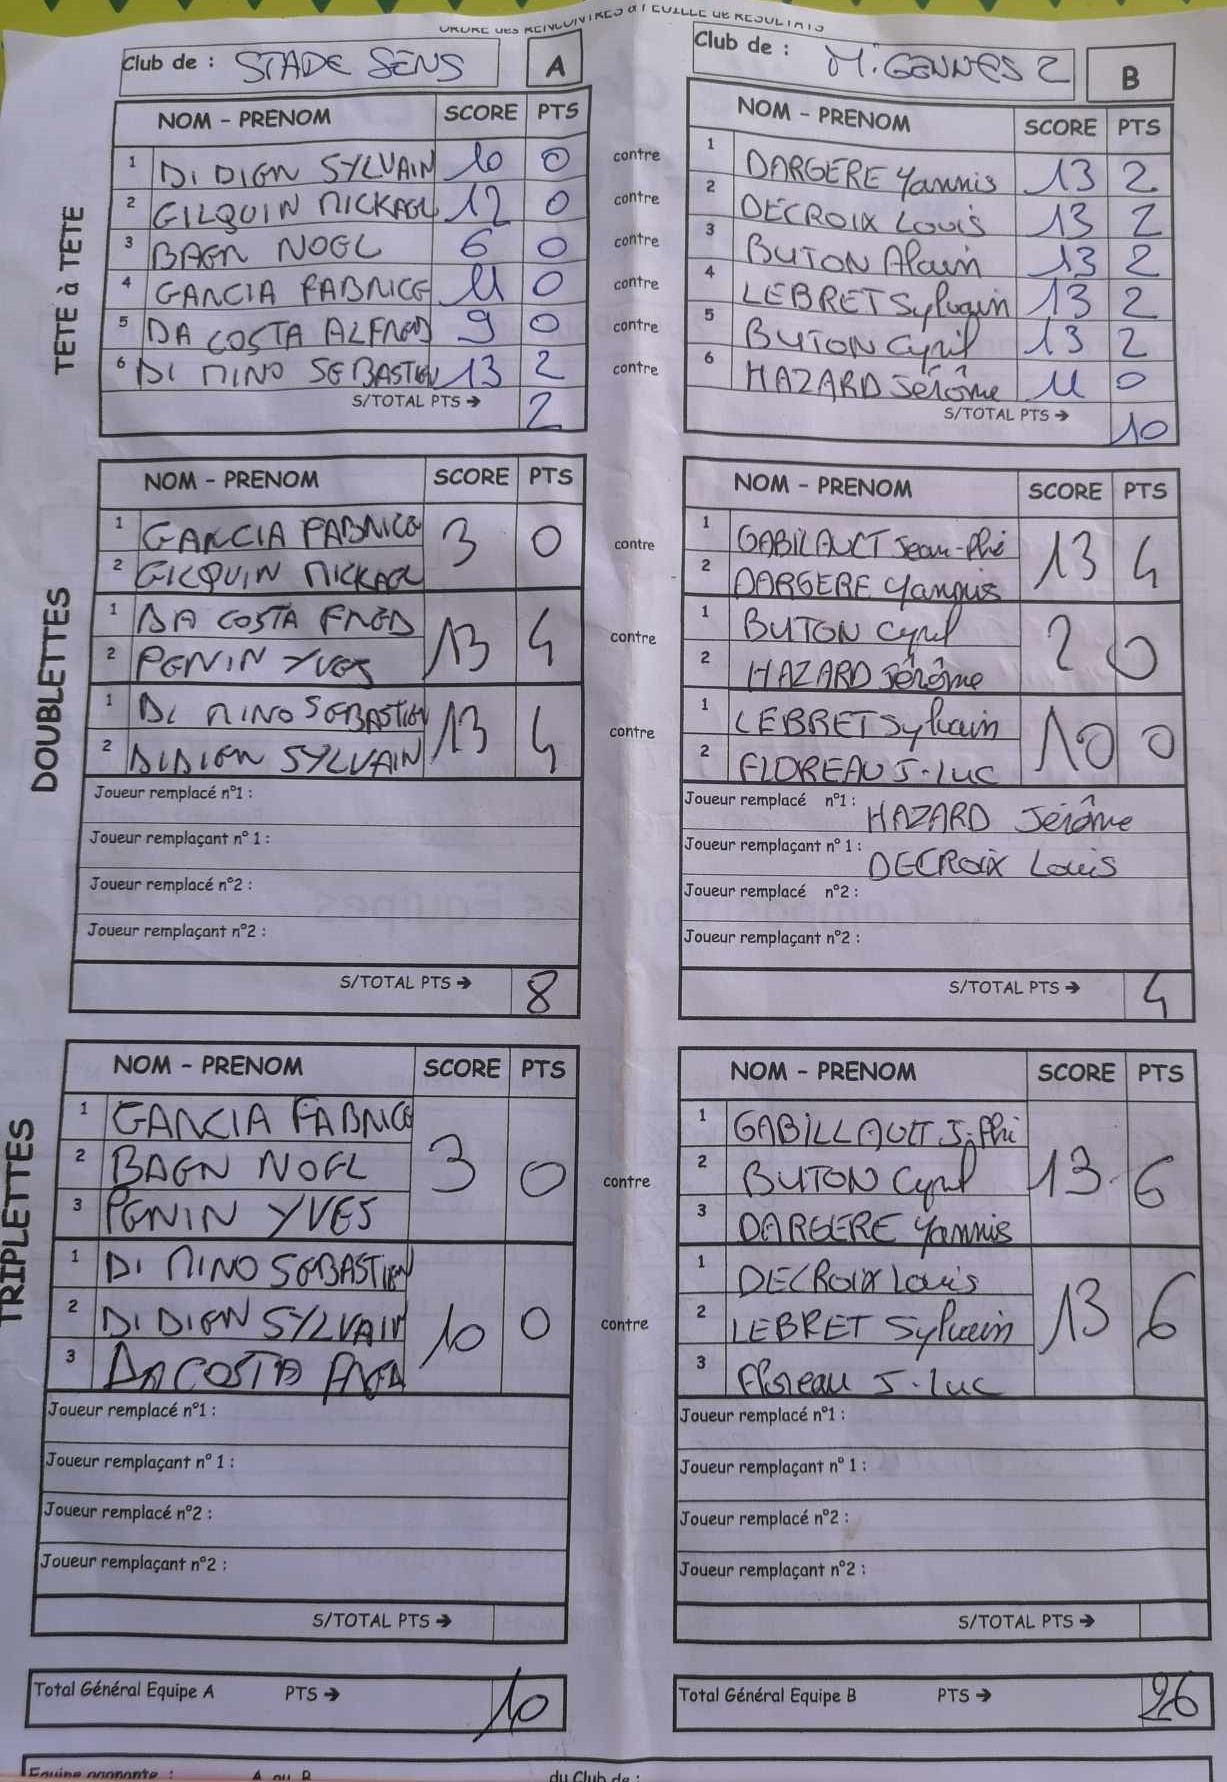 ORDRE des RENCONTRES & FEUILLE de RESULTATS
Club de : STADE SENS A
Club de : M. GENNES 2 B
TETE à TETE
NOM - PRENOM SCORE PTS
NOM - PRENOM SCORE PTS
1 DIDIER SYLVAIN 10 0 contre 1 DARGERE Yannis 13 2
2 GILQUIN MICKAEL 12 0 contre 2 DECROIX Louis 13 2
3 BAER NOEL 6 0 contre 3 BUTON Alain 13 2
4 GARCIA FABRICE 11 0 contre 4 LEBRET Sylvain 13 2
5 DA COSTA ALFRED 9 0 contre 5 BUTON Cyril 13 2
6 DI MINO SEBASTIEN 13 2 contre 6 HAZARD Jérôme 11 0
S/TOTAL PTS → 2
S/TOTAL PTS → 10
DOUBLETTES
NOM - PRENOM SCORE PTS
NOM - PRENOM SCORE PTS
1 GARCIA FABRICE 3 0 contre 1 GABILAULT Jean-Phi 13 4
2 GILQUIN MICKAEL 2 DARGERE Yannis
1 DA COSTA FRED 13 4 contre 1 BUTON Cyril 2 0
2 PERIN YVES 2 HAZARD Jérôme
1 DI MINO SEBASTIEN 13 4 contre 1 LEBRET Sylvain 10 0
2 DIDIER SYLVAIN 2 FLOREAU J-Luc
Joueur remplacé n°1 :
Joueur remplacé n°1 : HAZARD Jérôme
Joueur remplaçant n° 1 :
Joueur remplaçant n° 1 : DECROIX Louis
Joueur remplacé n°2 :
Joueur remplacé n°2 :
Joueur remplaçant n°2 :
Joueur remplaçant n°2 :
S/TOTAL PTS → 8
S/TOTAL PTS → 4
TRIPLETTES
NOM - PRENOM SCORE PTS
NOM - PRENOM SCORE PTS
1 GARCIA FABRICE 3 0 contre 1 GABILLAULT J-Phi 13 6
2 BAER NOEL 2 BUTON Cyril
3 PERIN YVES 3 DARGERE Yannis
1 DI MINO SEBASTIEN 10 0 contre 1 DECROIX Louis 13 6
2 DIDIER SYLVAIN 2 LEBRET Sylvain
3 DA COSTA FRED 3 Floreau J-Luc
Joueur remplacé n°1 :
Joueur remplacé n°1 :
Joueur remplaçant n° 1 :
Joueur remplaçant n° 1 :
Joueur remplacé n°2 :
Joueur remplacé n°2 :
Joueur remplaçant n°2 :
Joueur remplaçant n°2 :
S/TOTAL PTS →
S/TOTAL PTS →
Total Général Equipe A PTS → 10
Total Général Equipe B PTS → 26
Equipe gagnante : A ou B du Club de :